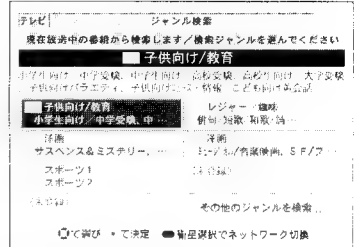 テレビ ジャンル検索
現在放送中の番組から検索します／検索ジャンルを選んでください
子供向け/教育
小学生向け 中学受験、中学生向け 高校受験、高校生向け 大学受験
子供向けバラエティ、子供向けニュース・情報 こども向け英会話
子供向け/教育
小学生向け／中学受験、中…
レジャー 趣味
俳句・短歌 和歌・詩…
洋画
サスペンス＆ミステリー、…
洋画
ミュージカル/名楽映画、ＳＦ/フ…
スポーツ１
スポーツ２
(未登録)
(未登録)
その他のジャンルを検索…
で選び で決定 衛星選択でネットワーク切換